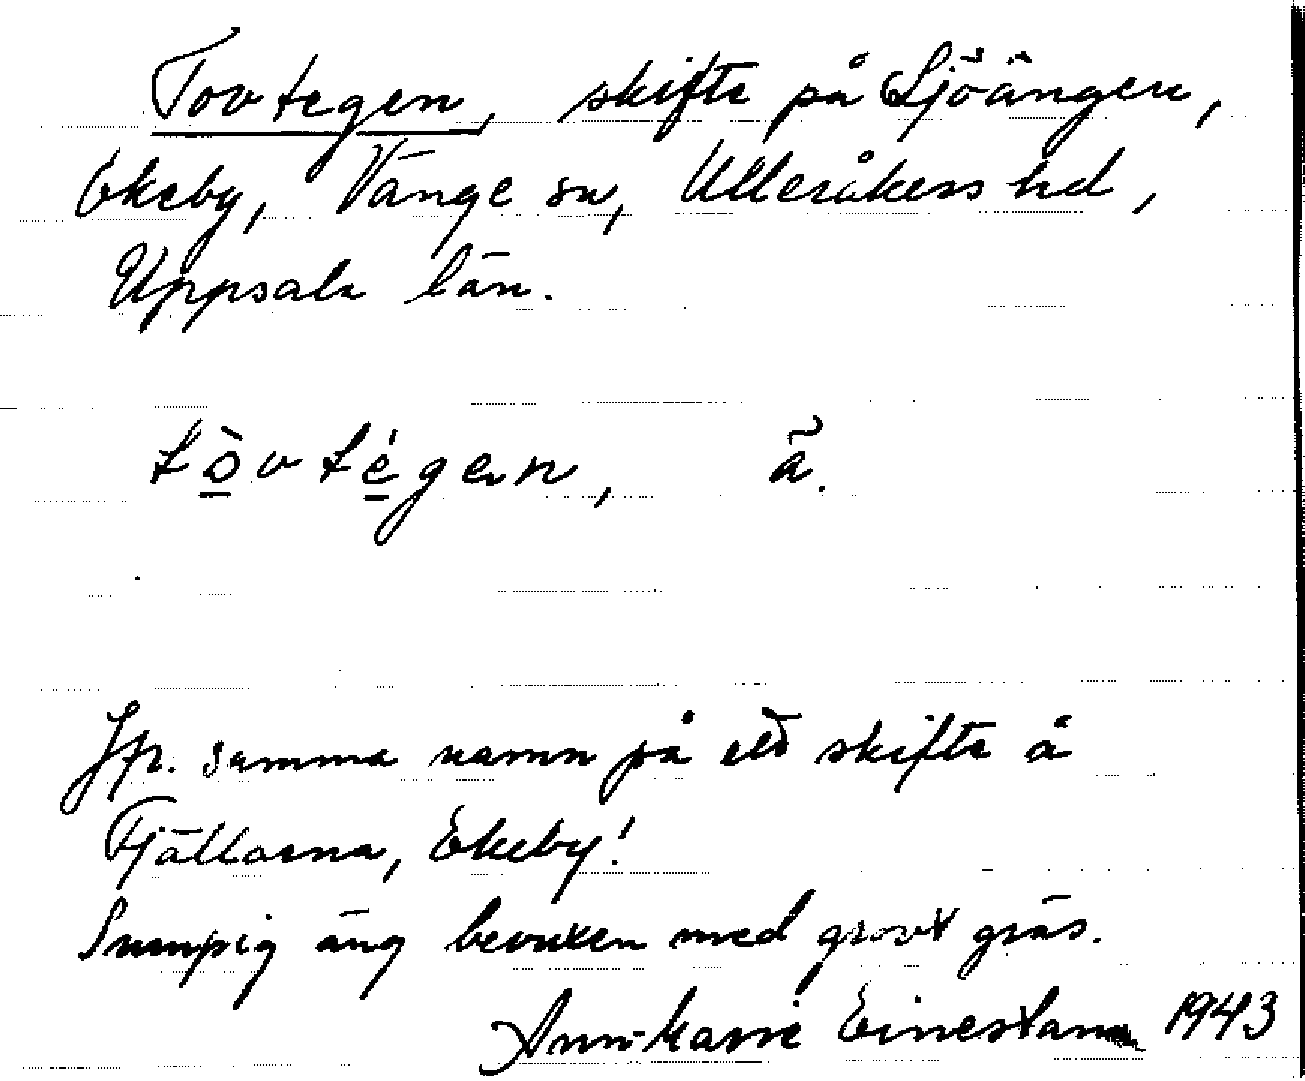 Tovtegen, skifte på Sjöängen,
Ekeby, Vänge sn, Ulleråkers hd,
Uppsala län.
tòvtégen, ã.
Jfr. samma namn på ett skifte å
Fjällarna, Ekeby!
Sumpig äng bevuxen med grovt gräs.
Ann-Marie Einestam 1943